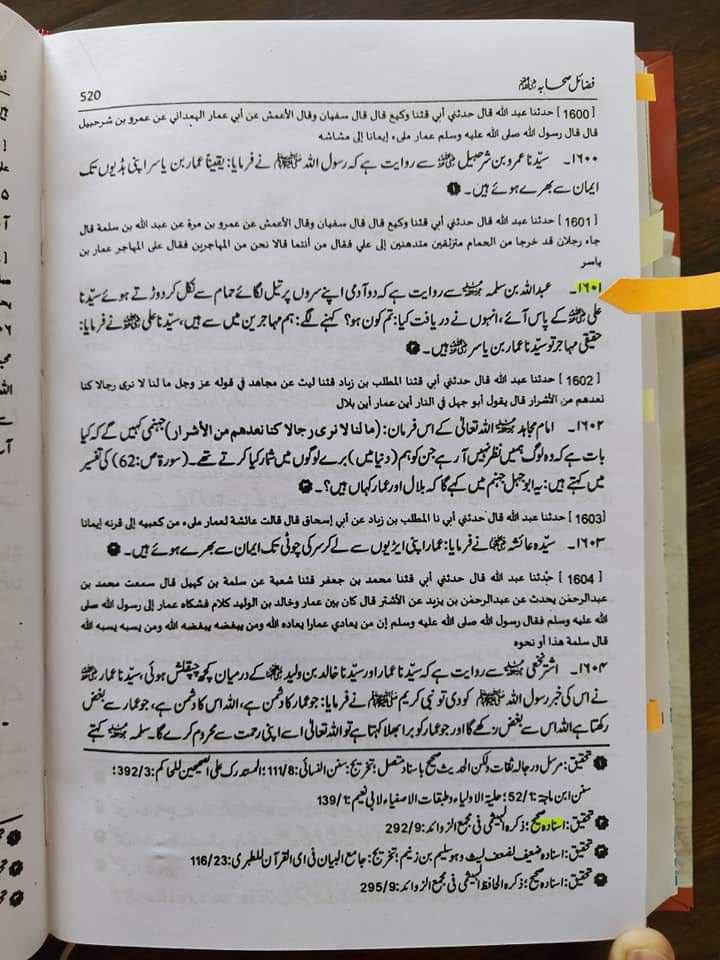 520
فضائل صحابہ رضی اللہ عنہم
[1600] حدثنا عبد الله قال حدثني أبي قثنا وكيع قال قال سفيان وقال الأعمش عن أبي عمار الهمداني عن عمرو بن شرحبيل
قال قال رسول الله صلى الله عليه وسلم عمار ملىء إيمانا إلى مشاشه
۱۶۰۰۔ سیّدنا عمرو بن شرحبیل رضی اللہ عنہ سے روایت ہے کہ رسول اللہ ﷺ نے فرمایا: یقیناً عمار بن یاسر اپنی ہڈیوں تک
ایمان سے بھرے ہوئے ہیں۔ ❶
[1601] حدثنا عبد الله قال حدثني أبي قثنا وكيع قال قال سفيان وقال الأعمش عن عمرو بن مرة عن عبد الله بن سلمة قال
جاء رجلان قد خرجا من الحمام متزلقين متدهنين إلى علي فقال من أنتما قالا نحن من المهاجرين فقال على المهاجر عمار بن
ياسر
۱۶۰۱۔ عبداللہ بن سلمہ رحمہ اللہ سے روایت ہے کہ دو آدمی اپنے سروں پر تیل لگائے حمام سے نکل کر دوڑتے ہوئے سیّدنا
علی رضی اللہ عنہ کے پاس آئے، انہوں نے دریافت کیا: تم کون ہو؟ کہنے لگے: ہم مہاجرین میں سے ہیں، سیّدنا علی رضی اللہ عنہ نے فرمایا:
حقیقی مہاجر تو سیّدنا عمار بن یاسر رضی اللہ عنہ ہیں۔ ❷
[1602] حدثنا عبد الله قال حدثني أبي قثنا المطلب بن زياد قثنا ليث عن مجاهد في قوله عز وجل ما لنا لا نرى رجالا كنا
نعدهم من الأشرار قال يقول أبو جهل في النار أين عمار أين بلال
۱۶۰۲۔ امام مجاہد رحمہ اللہ اللہ تعالیٰ کے اس فرمان: (ما لنا لا نرى رجالا كنا نعدهم من الأشرار) جہنمی کہیں گے کہ کیا
بات ہے کہ وہ لوگ ہمیں نظر نہیں آ رہے جن کو ہم (دنیا میں) برے لوگوں میں شمار کیا کرتے تھے۔ (سورۃ ص: 62) کی تفسیر
میں کہتے ہیں: یہ ابوجہل جہنم میں کہے گا کہ بلال اور عمار کہاں ہیں؟۔ ❸
[1603] حدثنا عبد الله قال حدثني أبي نا المطلب بن زياد عن أبي إسحاق قال قالت عائشة لعمار ملىء من كعبيه إلى قرنه إيمانا
۱۶۰۳۔ سیّدہ عائشہ رضی اللہ عنہا نے فرمایا: عمار اپنی ایڑیوں سے لے کر سر کی چوٹی تک ایمان سے بھرے ہوئے ہیں۔ ❹
[1604] حدثنا عبد الله قال حدثني أبي قثنا محمد بن جعفر قثنا شعبة عن سلمة بن كهيل قال سمعت محمد بن
عبدالرحمن يحدث عن عبدالرحمن بن يزيد عن الأشتر قال كان بين عمار وخالد بن الوليد كلام فشكاه عمار إلى رسول الله صلى
الله عليه وسلم فقال رسول الله صلى الله عليه وسلم إن من يعادي عمارا يعاده الله ومن يبغضه يبغضه الله ومن يسبه يسبه الله
قال سلمة هذا أو نحوه
۱۶۰۴۔ اشتر نخعی رحمہ اللہ سے روایت ہے کہ سیّدنا عمار اور سیّدنا خالد بن ولید رضی اللہ عنہما کے درمیان کچھ چپقلش ہوئی، سیّدنا عمار رضی اللہ عنہ
نے اس کی خبر رسول اللہ ﷺ کو دی تو نبی کریم ﷺ نے فرمایا: جو عمار کا دشمن ہے، اللہ اس کا دشمن ہے، جو عمار سے بغض
رکھتا ہے اللہ اس سے بغض رکھے گا اور جو عمار کو برا بھلا کہتا ہے تو اللہ تعالیٰ اسے اپنی رحمت سے محروم کرے گا۔ سلمہ رحمہ اللہ کہتے
❶ تحقیق: مرسل ورجالہ ثقات ولکن الحدیث صحیح باسناد متصل؛ تخریج: سنن النسائی: 111/8؛ المستدرک علی الصحیحین للحاکم: 392/3؛
سنن ابن ماجہ: 52/1؛ حلیۃ الاولیاء وطبقات الاصفیاء لابی نعیم: 139/1
❷ تحقیق: اسنادہ صحیح؛ ذکرہ الہیثمی فی مجمع الزوائد: 292/9
❸ تحقیق: اسنادہ ضعیف لضعف لیث وہو سلیم بن زنیم؛ تخریج: جامع البیان فی ای القرآن للطبری: 116/23
❹ تحقیق: اسنادہ صحیح؛ ذکرہ الحافظ الہیثمی فی مجمع الزوائد: 295/9